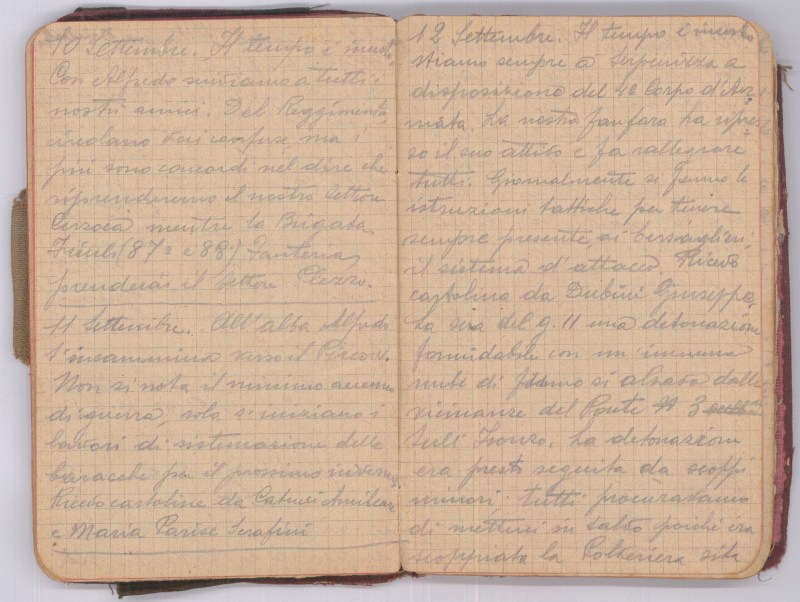 10 Settembre. Il tempo è incert.
Con Alfredo scriviamo a tutti i
nostri amici. Del Reggimento
circolano voci confuse, ma i
più sono concordi nel dire che
riprenderemo il nostro settore
mentre la Brigata
Friuli (87º e 88) Fanteria
prenderà il Settore Plezzo.
11 Settembre. All'alba Alfredo
s'incammina verso il
Non si nota il minimo accenno
di guerra, solo si iniziano i
lavori di sistemazione delle
baracche per il prossimo inverno.
Ricevo cartoline da Catucci Amilcare
e Maria Parise Serafini
12 Settembre. Il tempo è incerto
stiamo sempre a Serpenizza a
disposizione del 4º Corpo d'Ar
mata. La nostra fanfara ha ripre-
so il suo attivo e fa rallegrare
tutti. Giornalmente si fanno le
istruzioni tattiche per tenere
sempre presente ai bersaglieri,
il sistema d'attacco. Ricevo
cartolina da Dubini Giuseppe.
La sera del g. 11 una detonazione
formidabile con un'immensa
nube di fumo si alzava dalle
vicinanze del Ponte 3
sull'Isonzo. La detonazione
era presto seguita da scoppi
minori, tutti procuravamo
di metterci in salvo poichè era
scoppiata la Polveriera sita